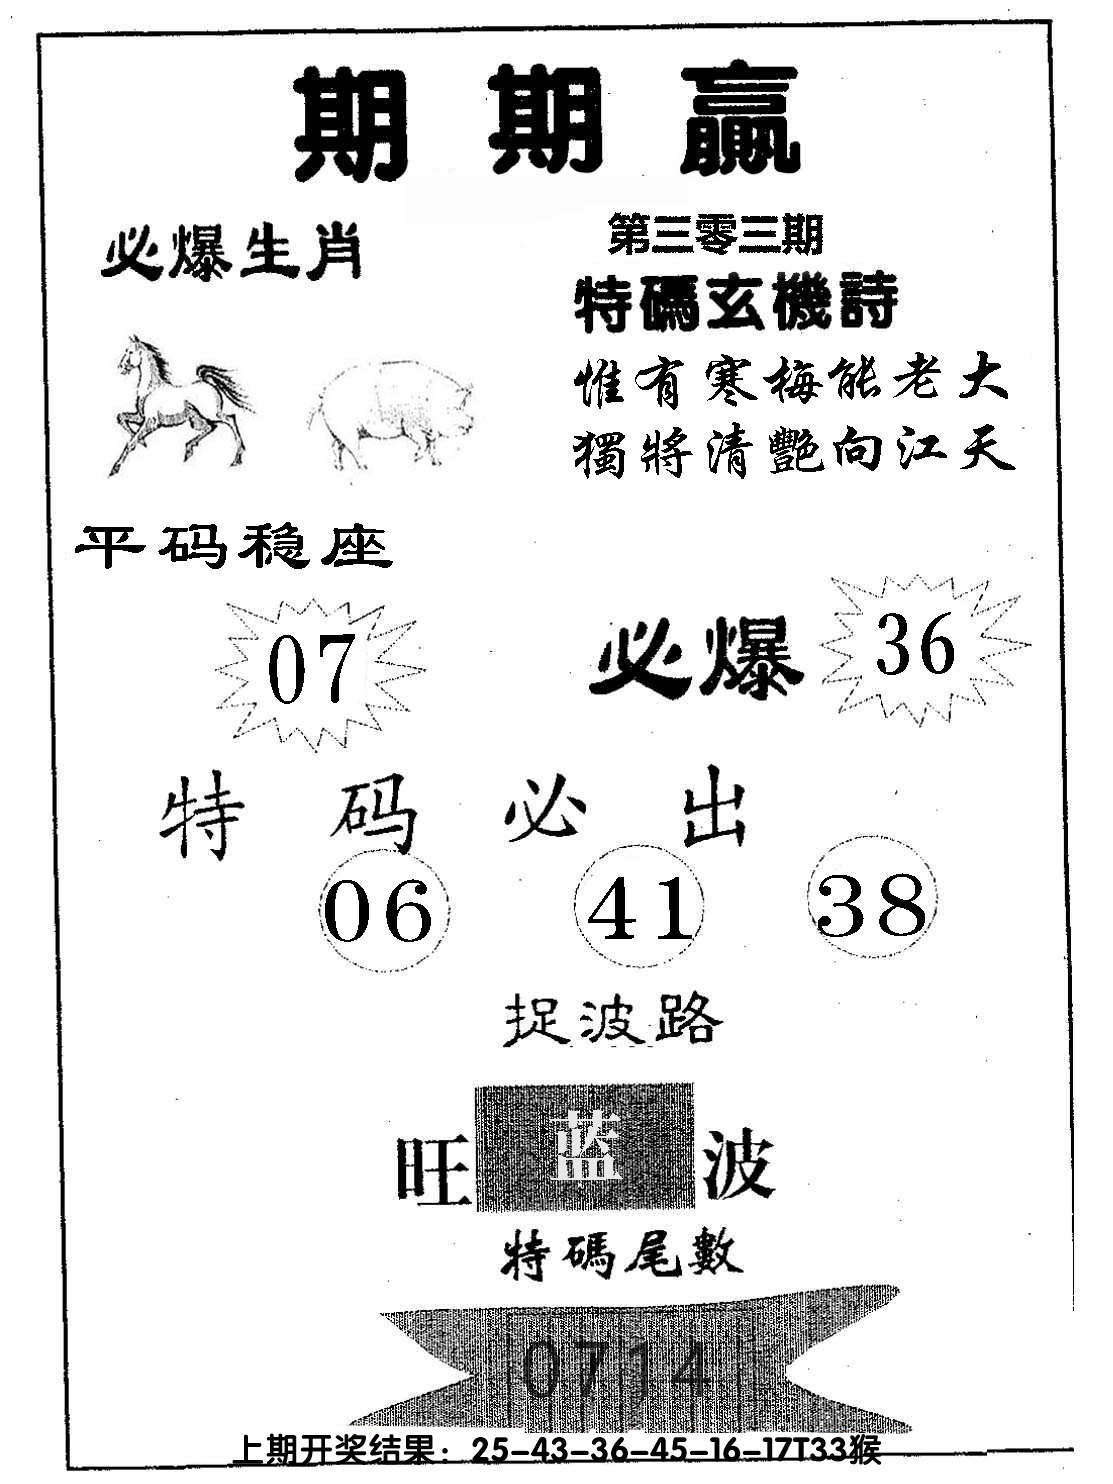 期期赢
必爆生肖
第三零三期
特碼玄機詩
惟有寒梅能老大
獨將清艷向江天
平码稳座
07
必爆
36
特码必出
06 41 38
捉波路
旺蓝波
特碼尾數
0714
上期开奖结果：25-43-36-45-16-17T33猴